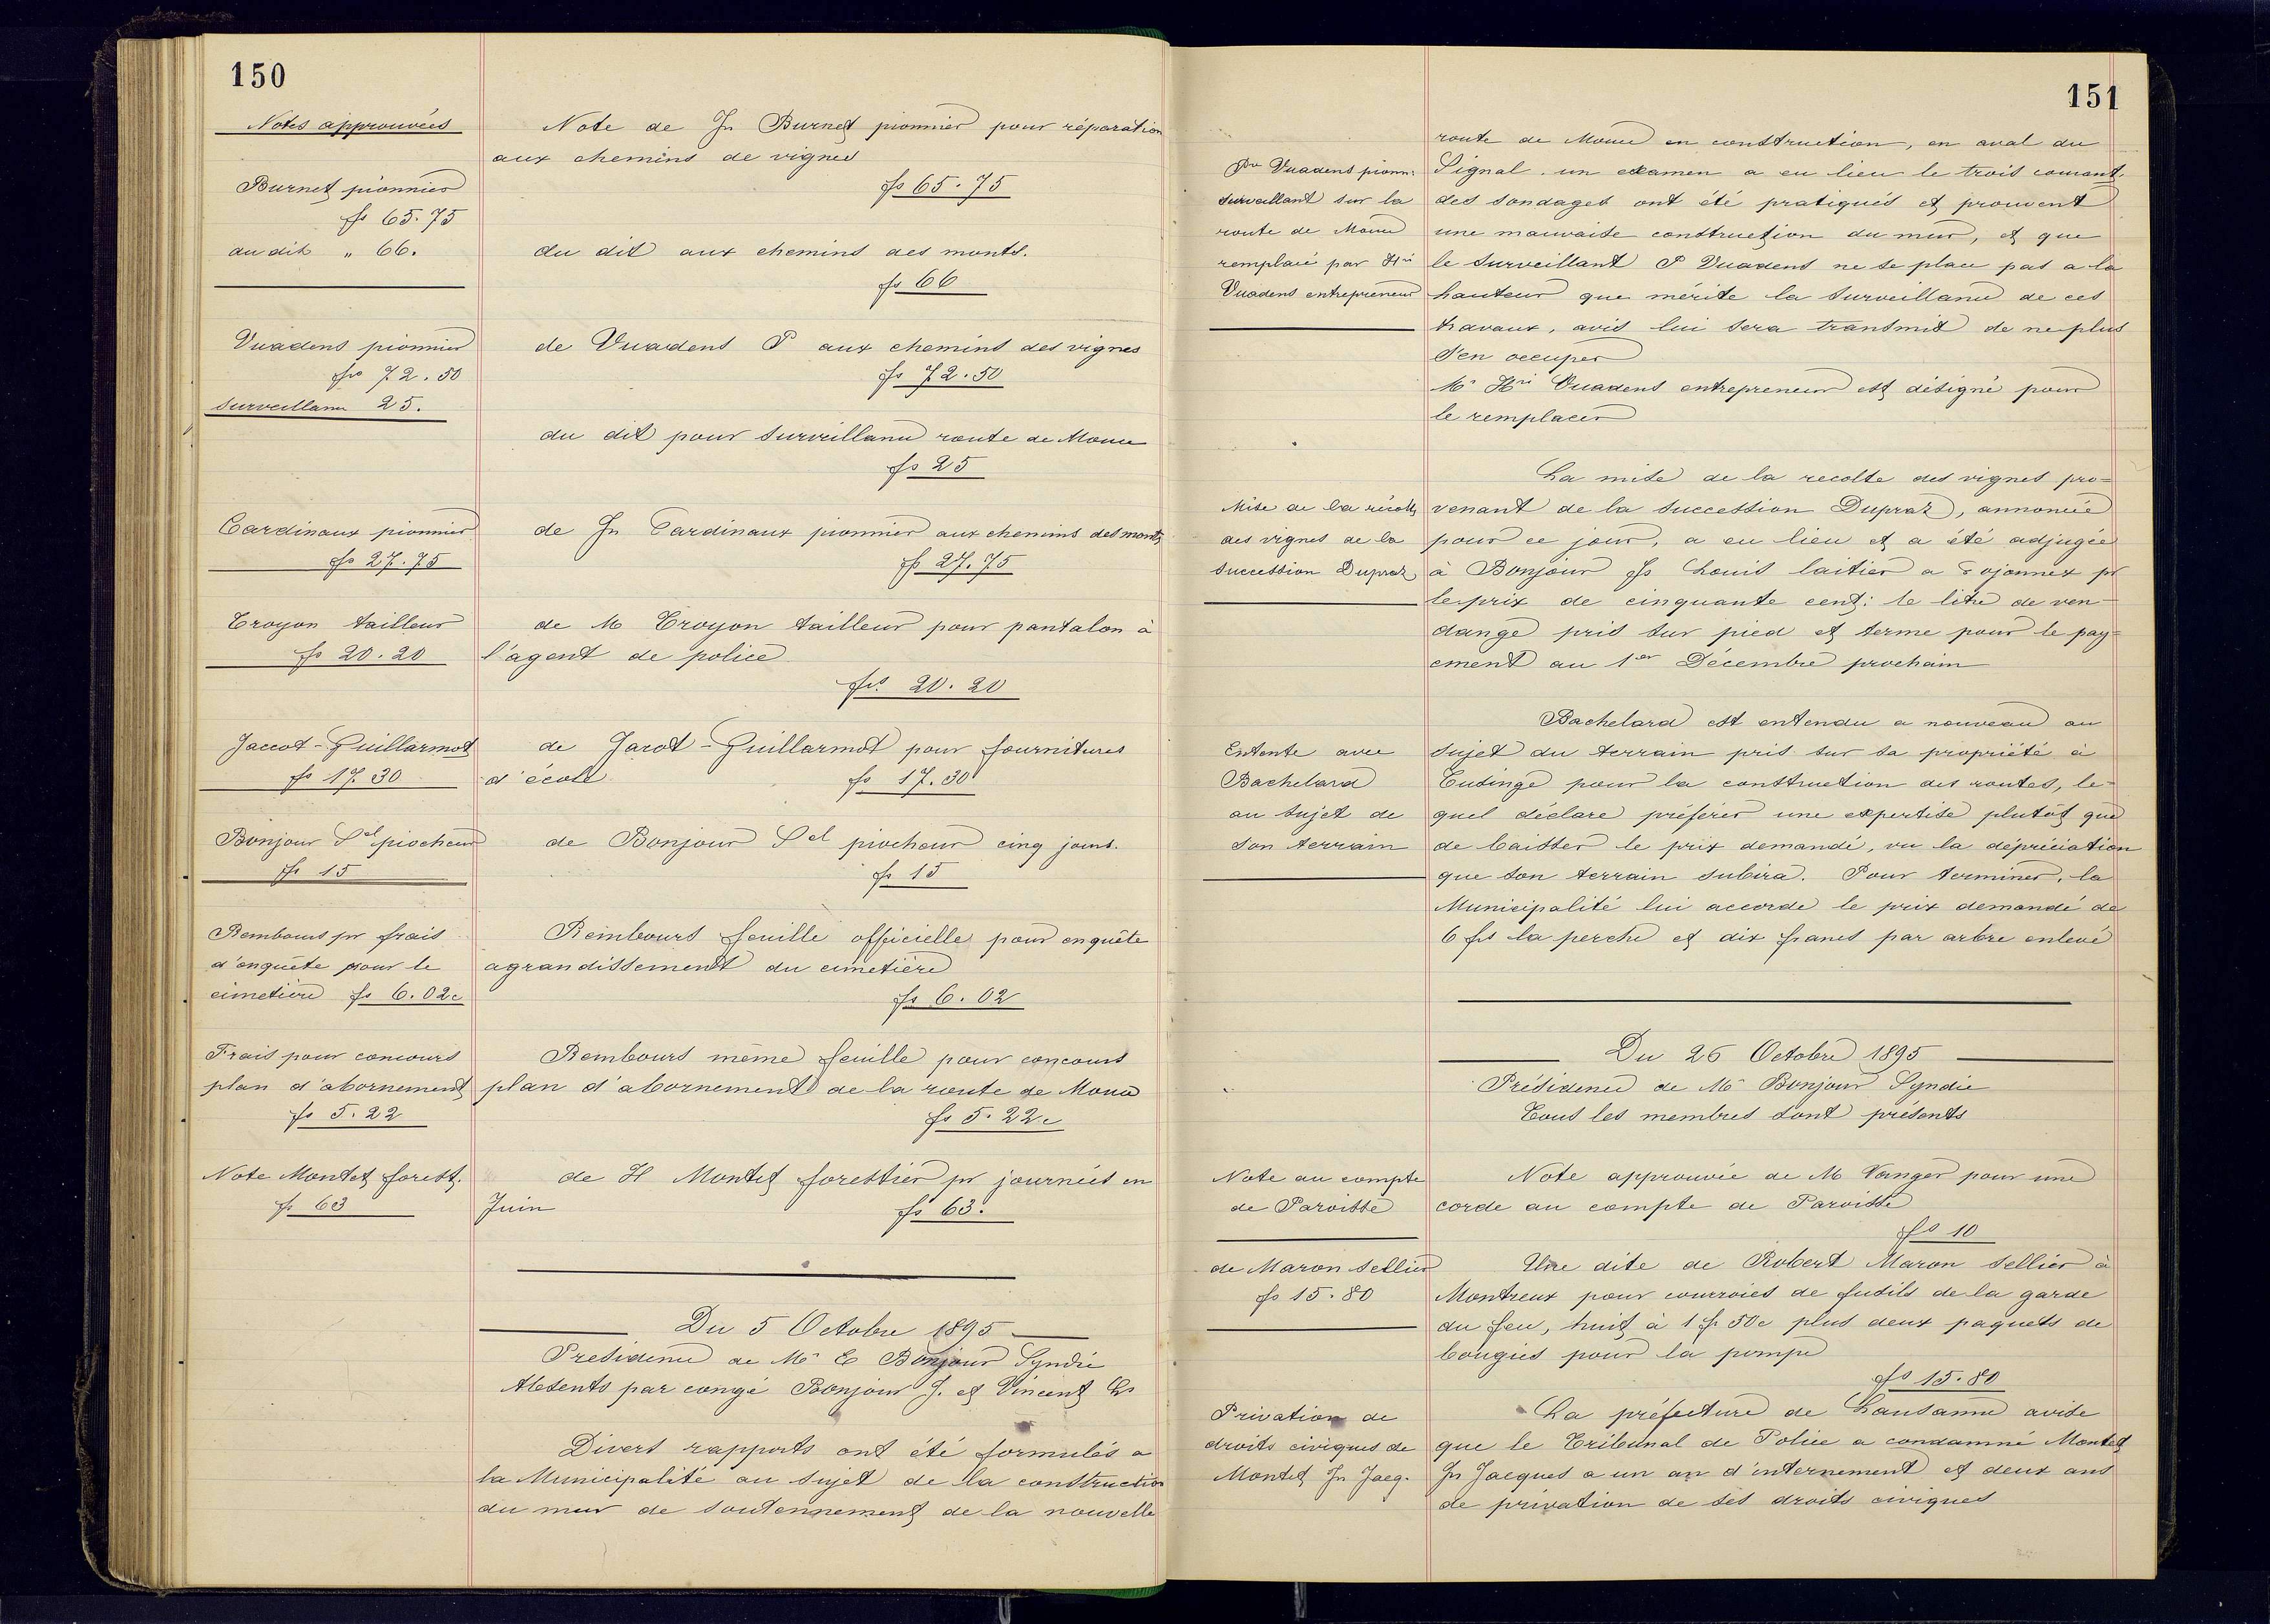 150
Notes approuvées
Burnet pionnier
fs 65.75
du dit " 66.
Vuadens pionnier
frs 72.50
surveillance 25.
Cardinaux pionnier
fs 27.75
Troyon tailleur
fs 20.20
Jaccot-Guillarmot
fs 17.30
Bonjour Sel piocheur
fs 15
Rembours pr frais
d'enquête pour le
cimetière fs 6.02c
Frais pour concours
plan d'abornement
fs 5.22
Note Montet forest.
fs 63
Note de Jn Burnet pionnier pour réparation
aux chemins de vignes
fs 65.75
du dit aux chemins des monts.
fs 66
de Vuadens P aux chemins des vignes
fs 72.50
du dit pour surveillance route de Mouce
fs 25
de Jn Cardinaux pionnier aux chemins des monts
fs 27.75
de M Troyon tailleur pour pantalon à
l'agent de police
frs. 20.20
de Jacot-Guillarmot pour fournitures
d'école fs 17.30
de Bonjour Sel piocheur cinq jours.
fs 15
Reimbours feuille officielle pour enquête
agrandissement du cimetière
fs 6.02
Rembours même feuille pour concours
plan d'abornement de la route de Mouce
fs 5.22c
de H Montet forestier pr journées en
Juin fs 63.
Du 5 Octobre 1895
Présidence de Mr E Bonjour Syndic
Absents par congé Bonjour J. et Vincent Ls
Divers rapports ont été formulés a
la Municipalité au sujet de la construction
du mur de soutennement de la nouvelle
151
Vuadens pionn.
surveillant sur la
route de Mouce
remplacé par Hri
Vuadens entrepreneur
Mise de la récolte
des vignes de la
succession Dupraz
Entente avec
Bachelard
au sujet de
son terrain
Note au compte
de Paroisse
de Maron sellier
fs 15.80
Privation de
droits civiques de
Montet Jn Jacq.
route de Mouce en construction, en aval du
Signal. un examen a eu lieu le trois courant.
des sondages ont été pratiqués et prouvent
une mauvaise construction du mur, et que
le surveillant P Vuadens ne se place pas a la
hauteur que mérite la surveillance de ces
travaux, avis lui sera transmis de ne plus
s'en occuper
Mr Hri Vuadens entrepreneur est désigné pour
le remplacer
La mise de la recolte des vignes pro=
venant de la succession Dupraz, annoncée
pour ce jour, a eu lieu et a été adjugée
à Bonjour Fs Louis laitier a Gojonnex pr
le prix de cinquante cent: le litre de ven-
dange pris sur pied et terme pour le pay=
ement au 1er Décembre prochain
Bachelard est entendu a nouveau au
sujet du terrain pris sur sa propriété à
Cudinge pour la construction des routes, le=
quel déclare préférer une expertise plutôt que
de baisser le prix demandé, vu la dépréciation
que son terrain subira. Pour terminer, la
Municipalité lui accorde le prix demandé de
6 frs la perche et dix francs par arbre enlevé
Du 26 Octobre 1895
Présidence de Mr Bonjour Syndic
Tous les membres sont présents
Note approuvée de M Vanger pour une
corde au compte de Paroisse
fs 10
Une dite de Robert Maron sellier à
Montreux pour courroies de fusils de la garde
du feu, huit à 1 fr 50c plus deux paquets de
bougies pour la pompe
frs 15.80
La préfecture de Lausanne avise
que le Tribunal de Police a condamné Montet
Jn Jacques a un an d'internement et deux ans
de privation de ses droits civiques